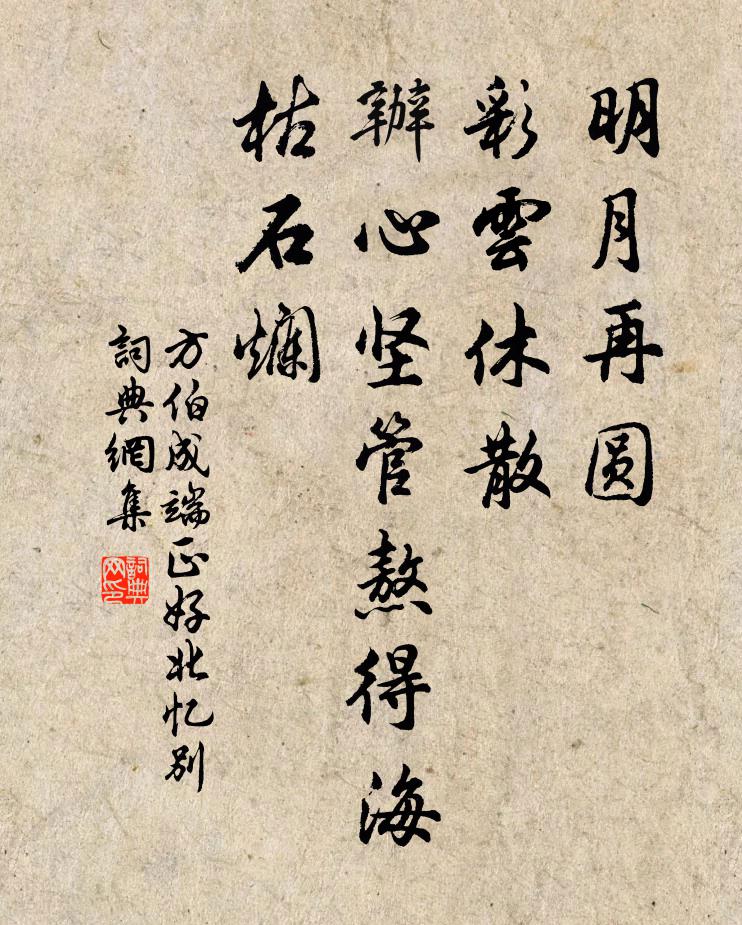 明月再圆
彩雲休散
辦心坚管熬得海
枯石爛
方伯成端正好北忆别
詞典網集
詞典网印